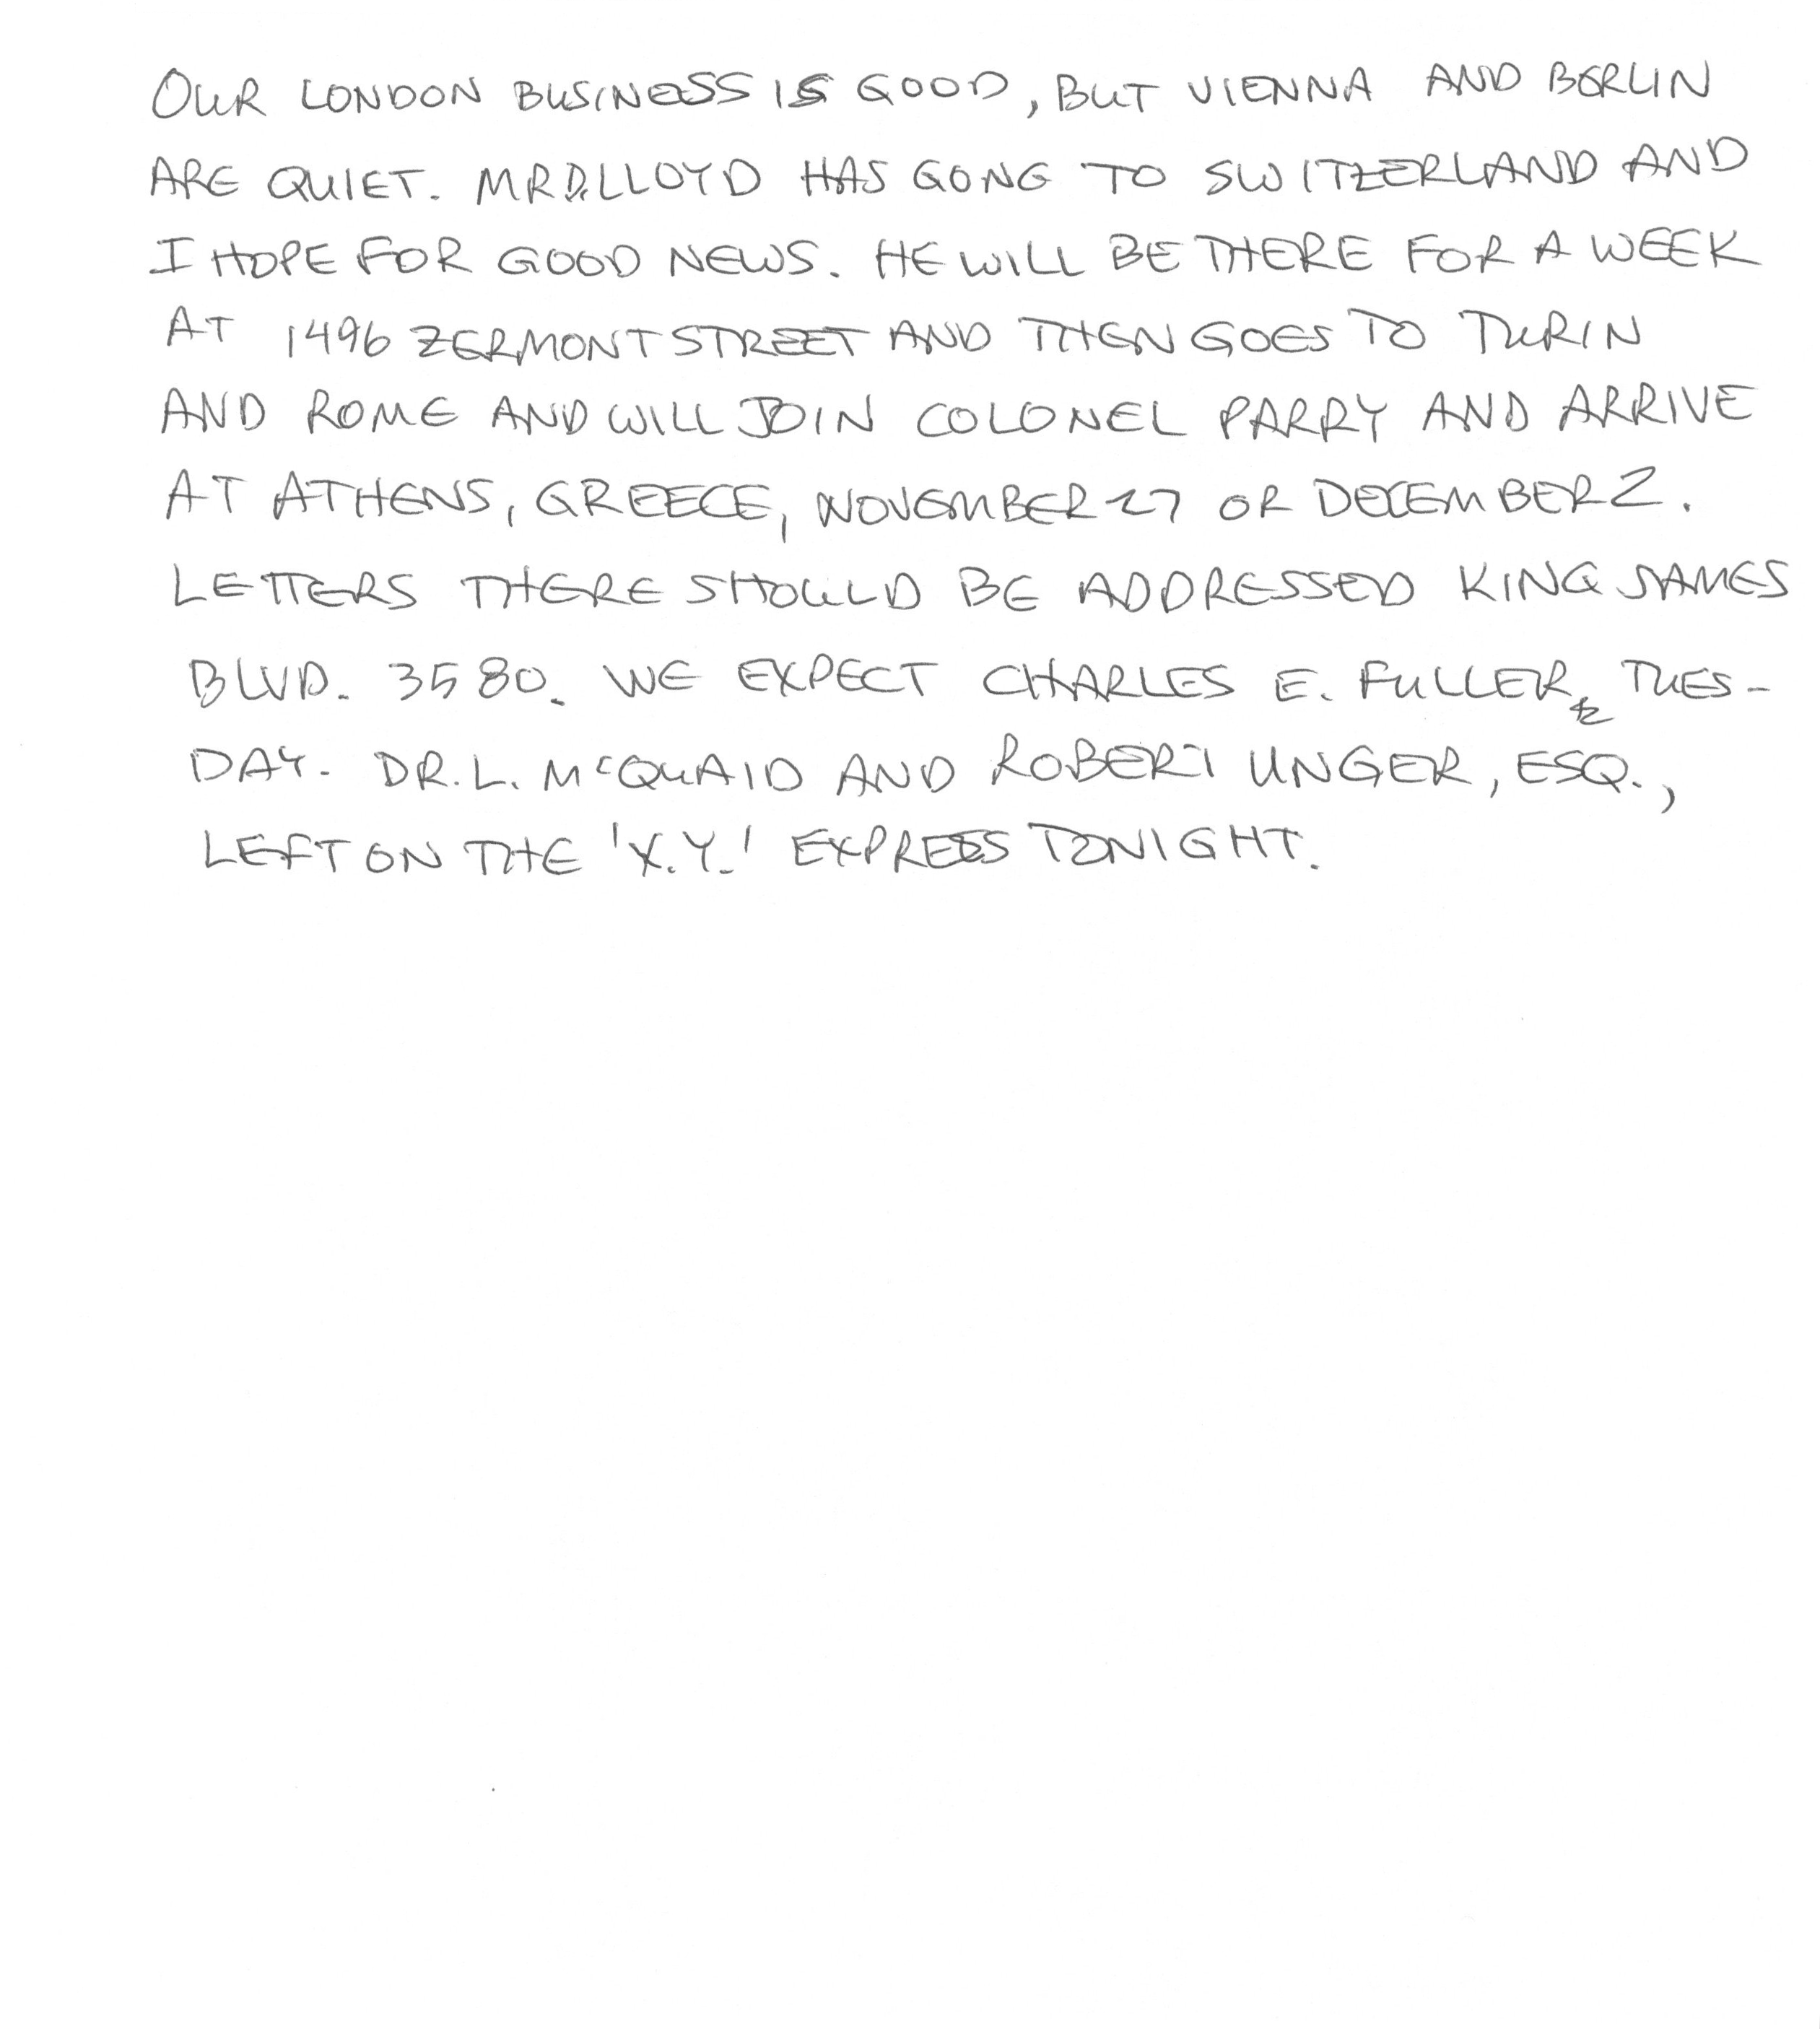 OUR LONDON BUSINESS IS GOOD, BUT VIENNA AND BERLIN
ARE QUIET. MR D. LLOYD HAS GONG TO SWITZERLAND AND
I HOPE FOR GOOD NEWS. HE WILL BE THERE FOR A WEEK
AT 1496 ZERMONT STREET AND THEN GOES TO TURIN
AND ROME AND WILL JOIN COLONEL PARRY AND ARRIVE
AT ATHENS, GREECE, NOVEMBER 27 OR DECEMBER 2.
LETTERS THERE SHOULD BE ADDRESSED KING JAMES
BLVD. 3580. WE EXPECT CHARLES E. FULLER TUES-
DAY. DR. L. McQUAID AND ROBERT UNGER, ESQ.,
LEFT ON THE 'X.Y.' EXPRESS TONIGHT.